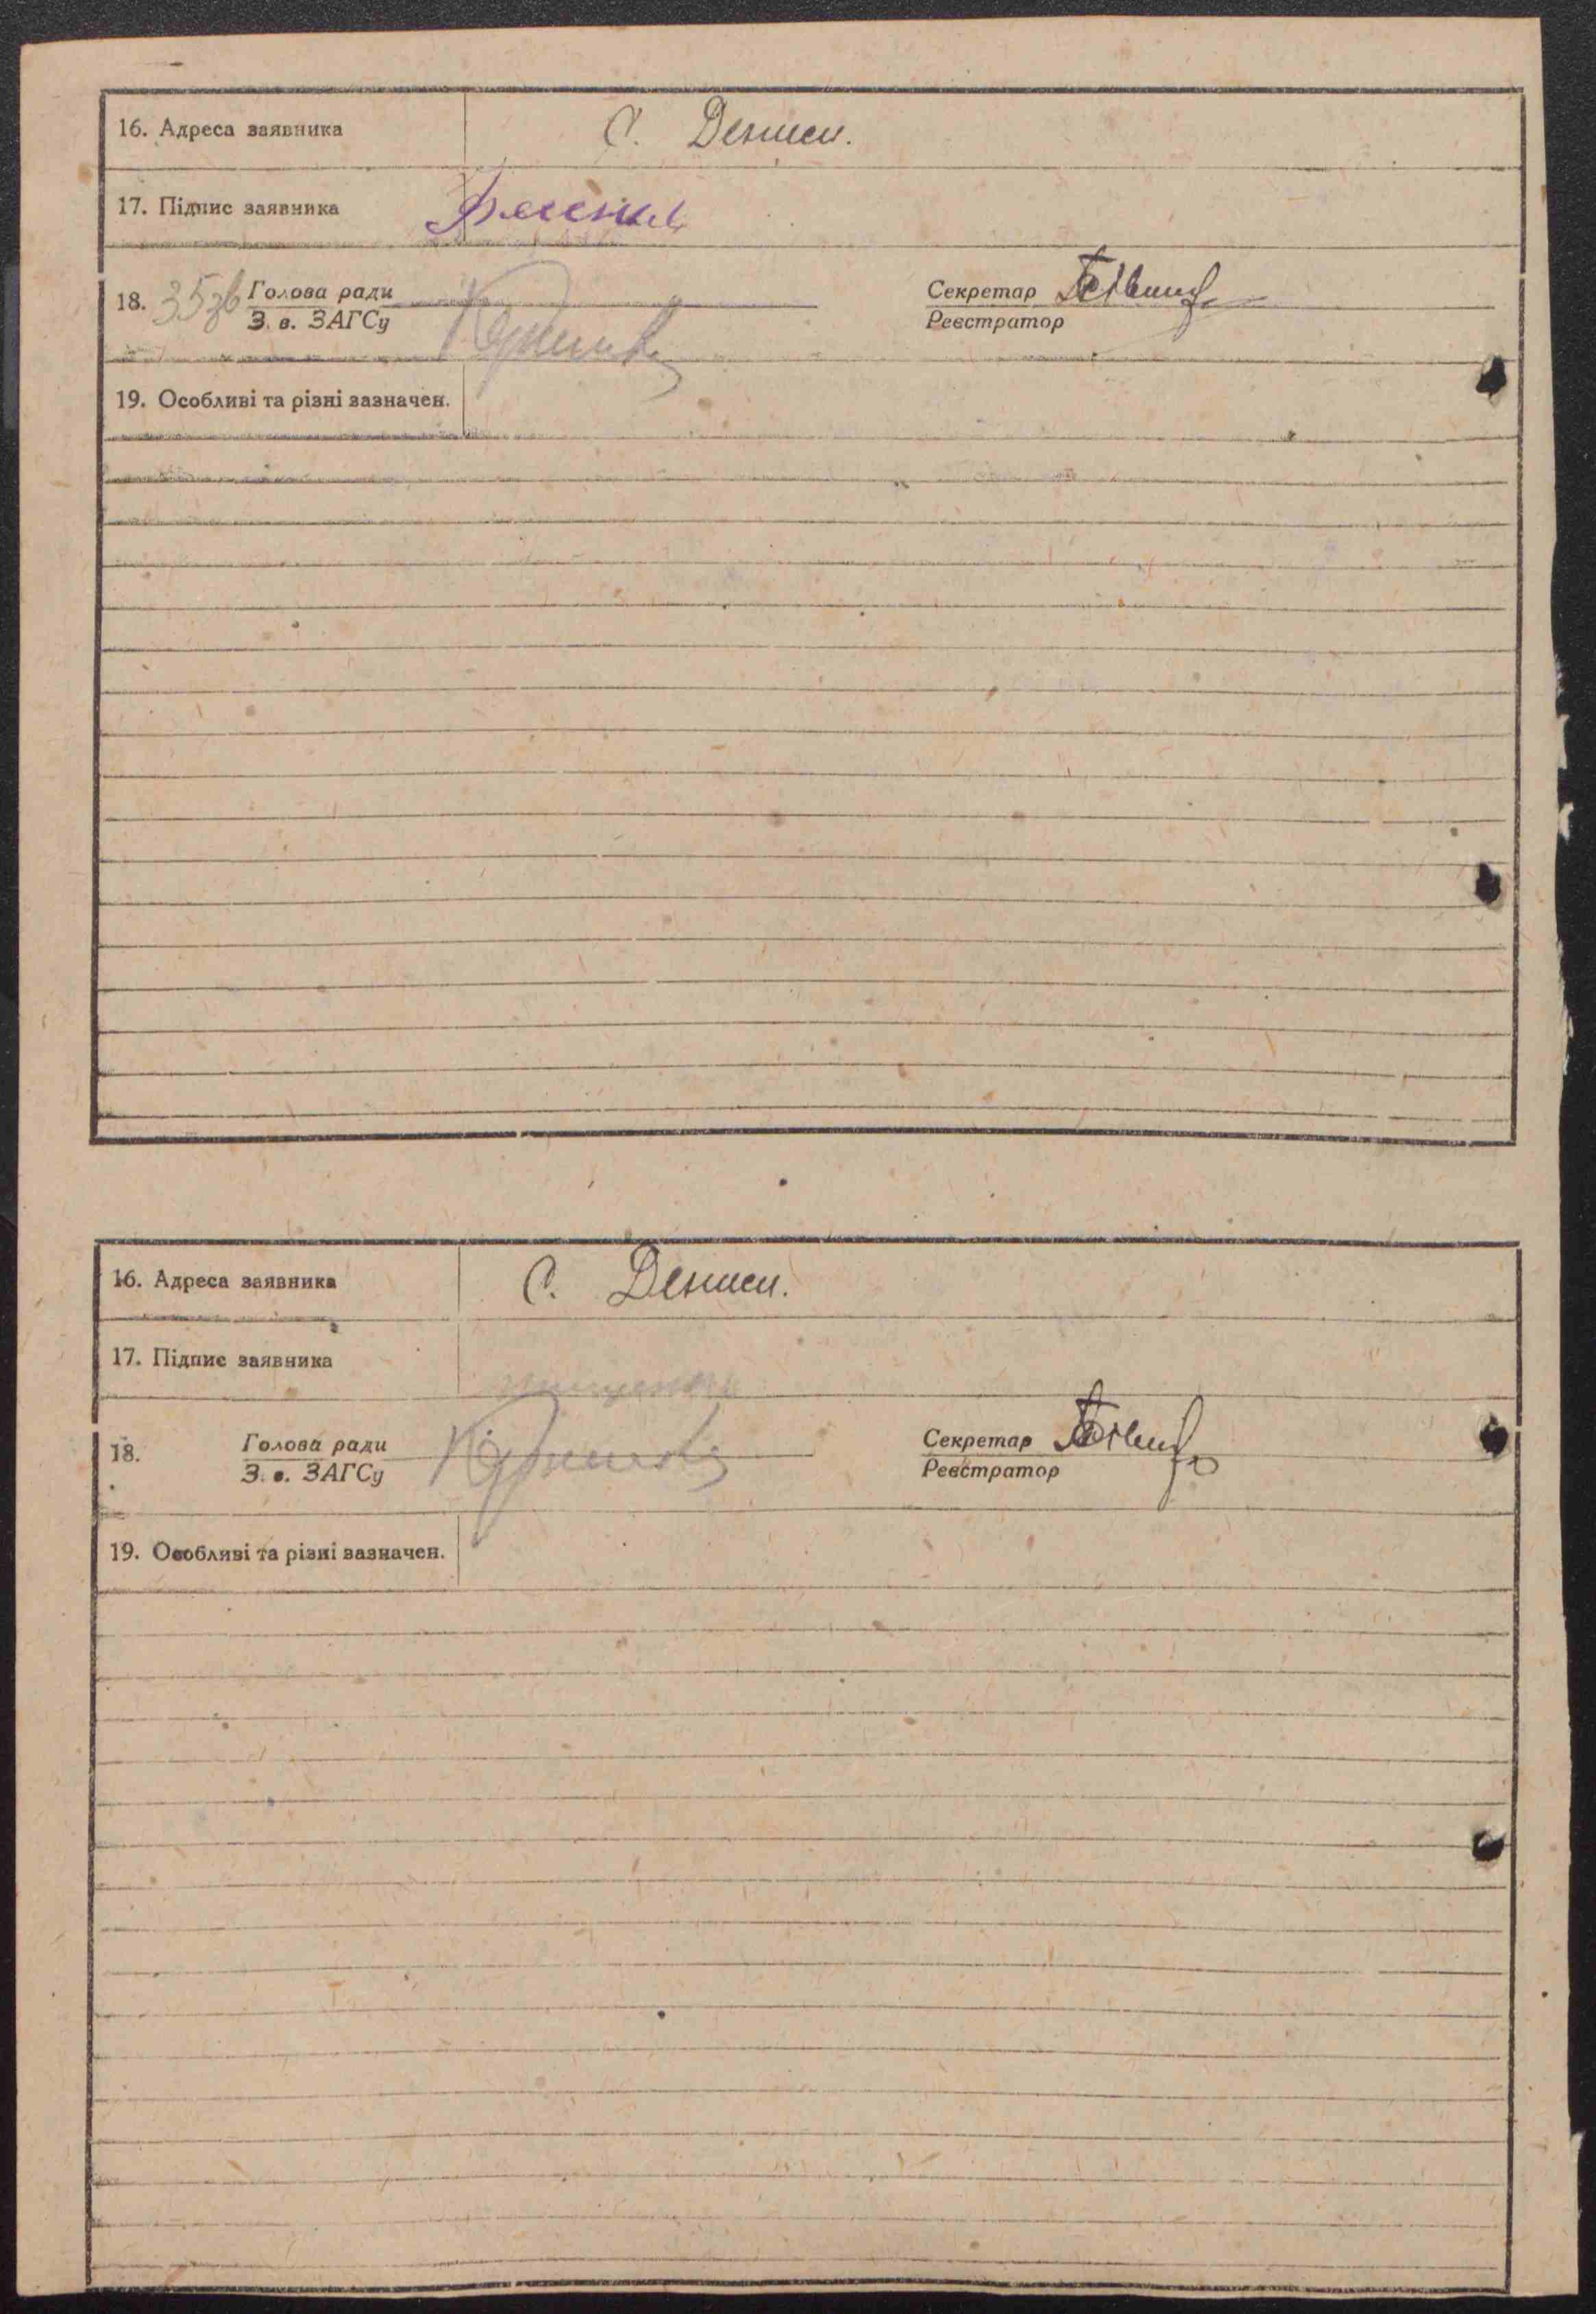 16. Адреса заявника С. Дениси.
17. Підпис заявника
18. Голова ради Секретар
З. в. ЗАГСу Реєстратор
19. Особливі та різні зазначен.
16. Адреса заявника С. Дениси.
17. Підпис заявника
18. Голова ради Секретар
З. в. ЗАГСу Реєстратор
19. Особливі та різні зазначен.